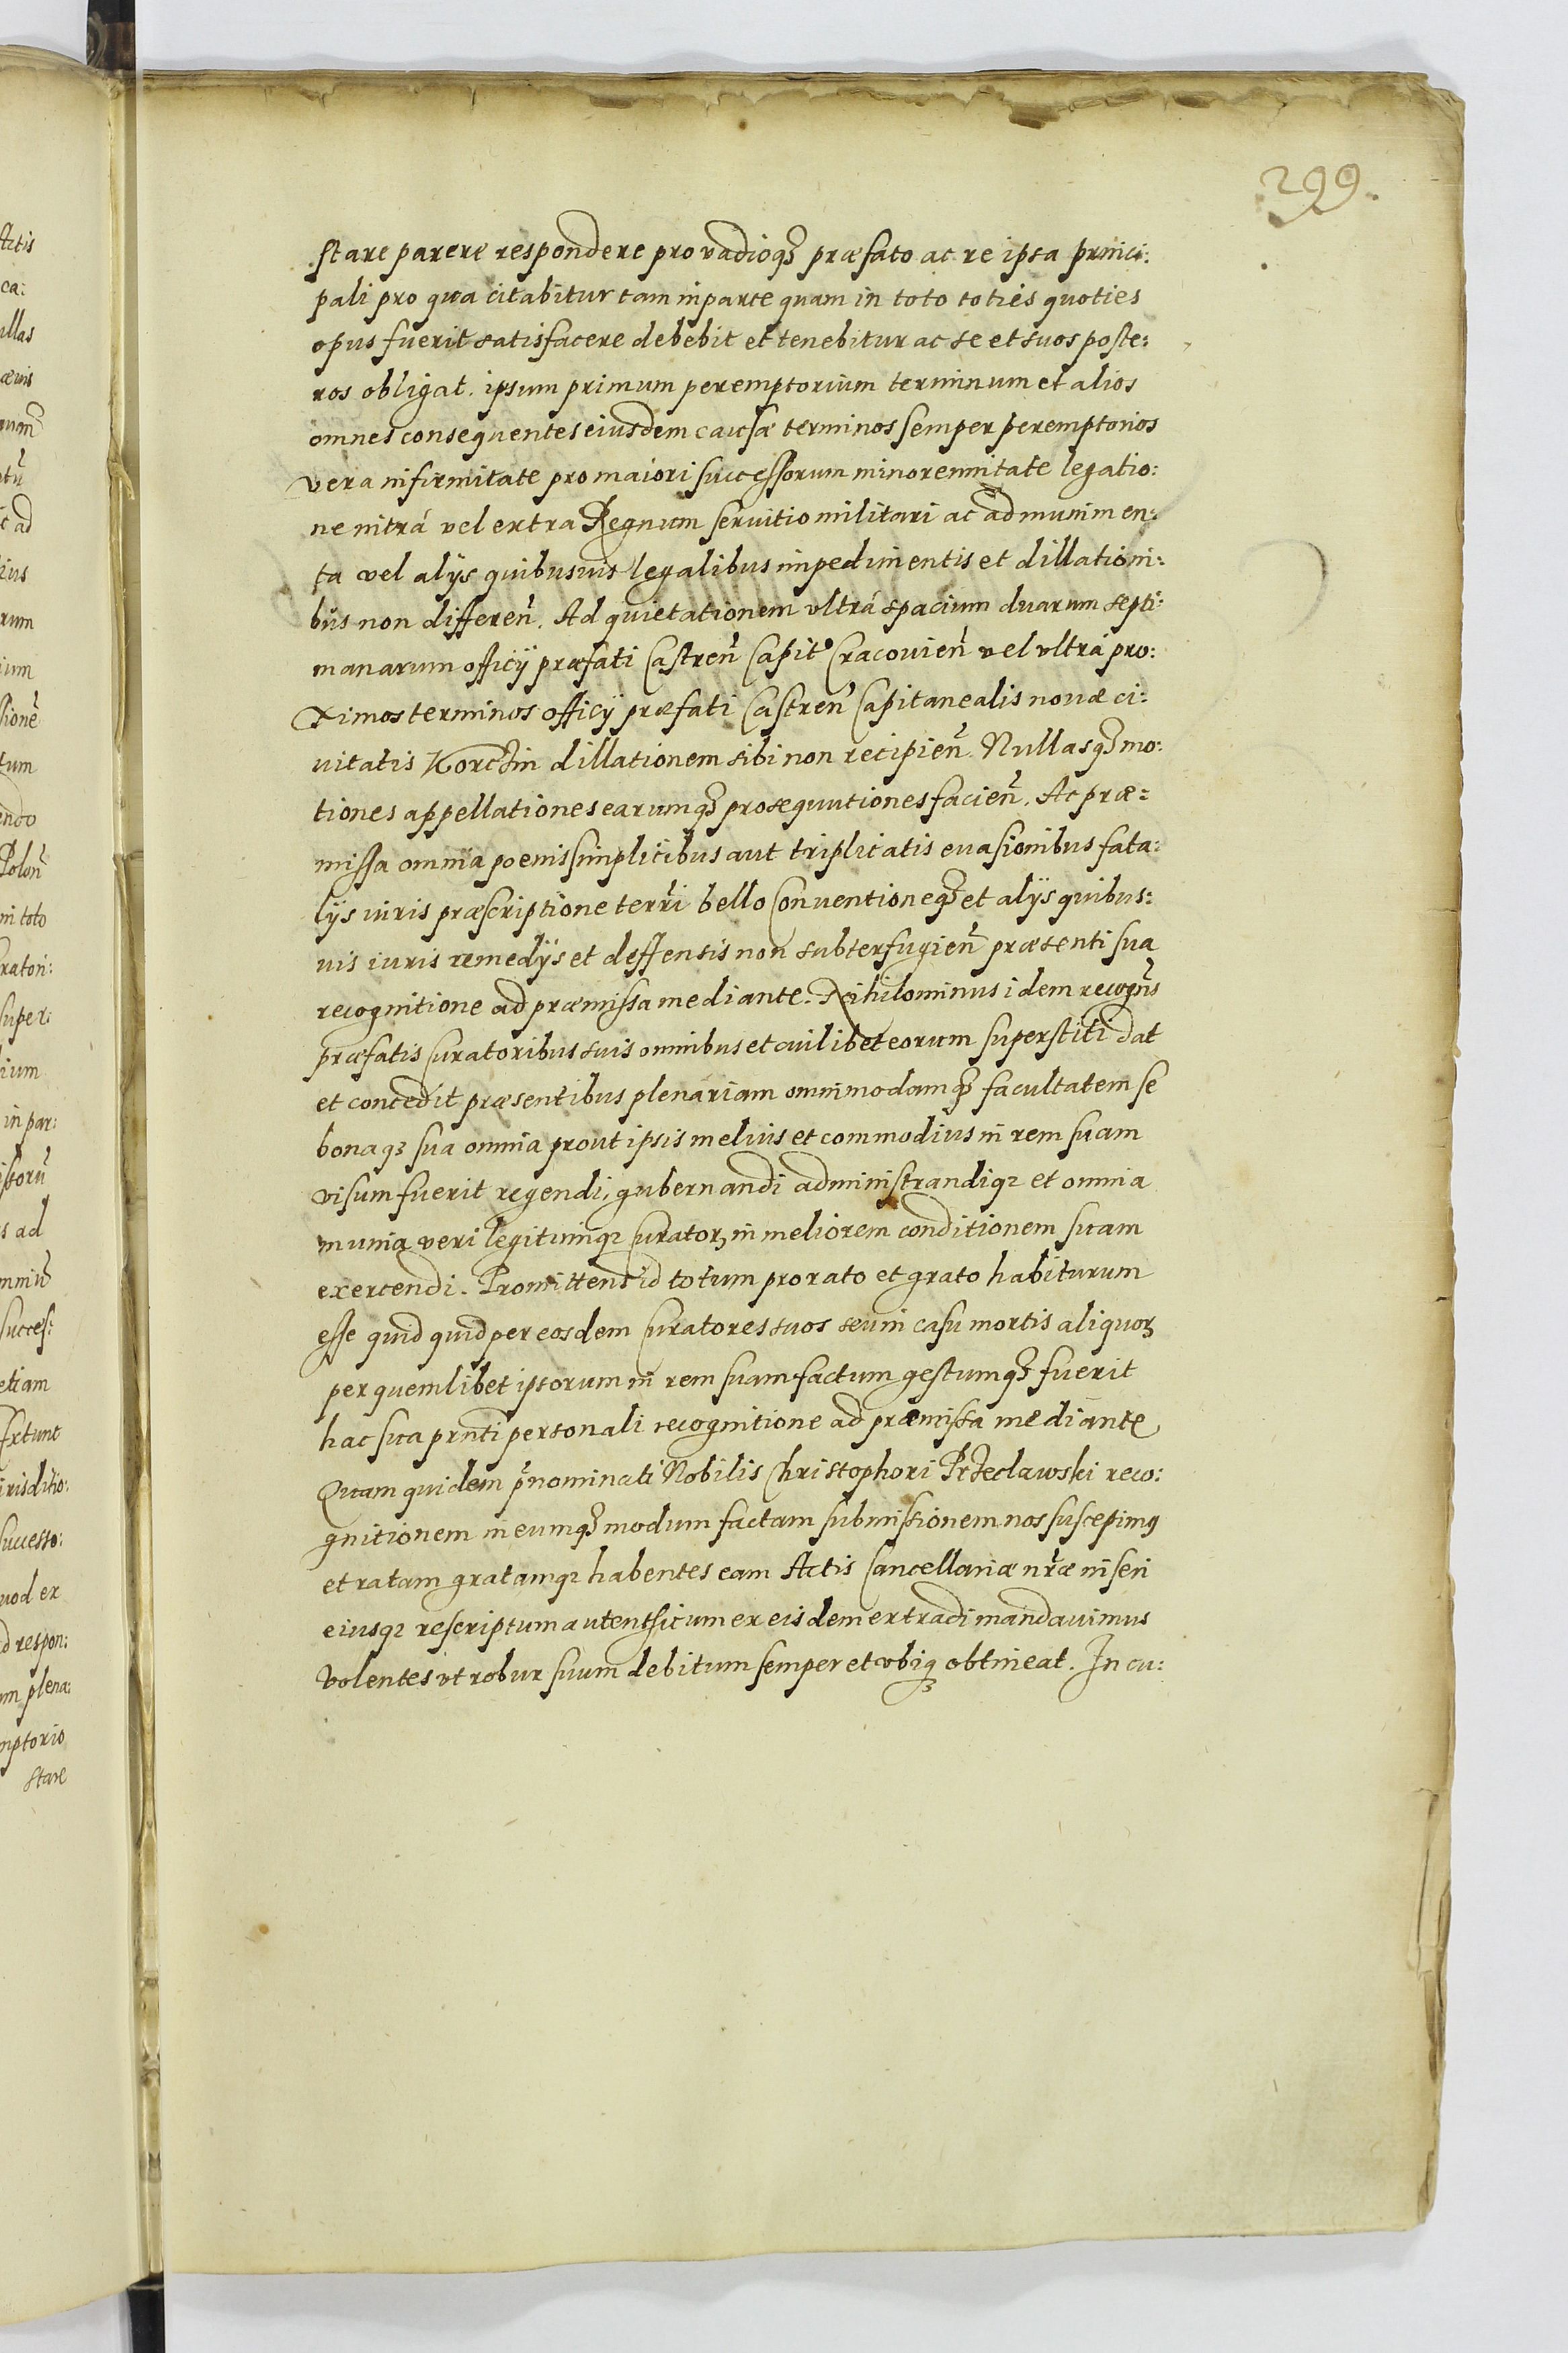 299.
stare parere respondere pro vadioq₃ præfato ac re ipsa princi:
pali pro qua citabitur tam in parte quam in toto toties quoties
opus fuerit satisfacere debebit et tenebitur ac se et suos poste:
ros obligat. ipsum primum peremptorium terminum et alios
omnes consequentes eiusdem causæ terminos semper peremptorios
vera infirmitate pro maiori successorum minorennitate legatio:
ne intrá vel extra Regnum servitio militari ac ad munimen:
ta vel alÿs quibusuis legalibus impedimentis et dillationi:
bus non differeñ. Ad quietationem vltrá spacium duarum septi:
manarum officÿ præfati Castreñ Capit̃ Cracouieñ vel vltrá pro:
ximos terminos officÿ præfati Castreñ Capitanealis nouæ ci:
uitatis Korczin dillationem sibi non recipieñ. Nullasq₃ mo:
tiones appellationes earumq₃ prosequutiones facieñ. Ac præ=
missa omnia poenis simplicibus aut triplicatis euasionibus fata:
lÿs iuris præscriptione terr̃i bello Conuentioneq₃ et alÿs quibus:
uis iuris remedÿs et deffensis non subterfugieñ præsenti sua
recognitione ad præmissa mediante. Nihilominus idem recogñs
præfatis Curatoribus suis omnibus et cuilibet eorum superstiti dat
et concedit præsentibus plenariam omnimodamq₃ facultatem se
bonaq₃ sua omnia prout ipsis melius et commodius in rem suam
visum fuerit regendi, gubernandi administrandiq₃ et omnia
munia veri legitimiq₃ Curatorꝫ in meliorem conditionem suam
exercendi. Promittens id totum pro rato et grato habiturum
esse quid quid per eosdem Curatores suos seu in casu mortis aliquorꝫ
per quemlibet ipsorum in rem suam factum gestumq₃ fuerit
hac sua prñti personali recognitione ad præmissa mediante
Quam quidem p̃nominati Nobilis Christophori Przeclawski reco:
gnitionem in eumq₃ modum factam submissionem nos suscepimꝯ
et ratam gratamq₃ habentes eam Actis Cancellariæ nr̃æ inseri
eiusq₃ rescriptum autenthicum ex eisdem extradi mandauimus
volentes vt robur suum debitum semper et vbiq₃ obtineat. In cu: